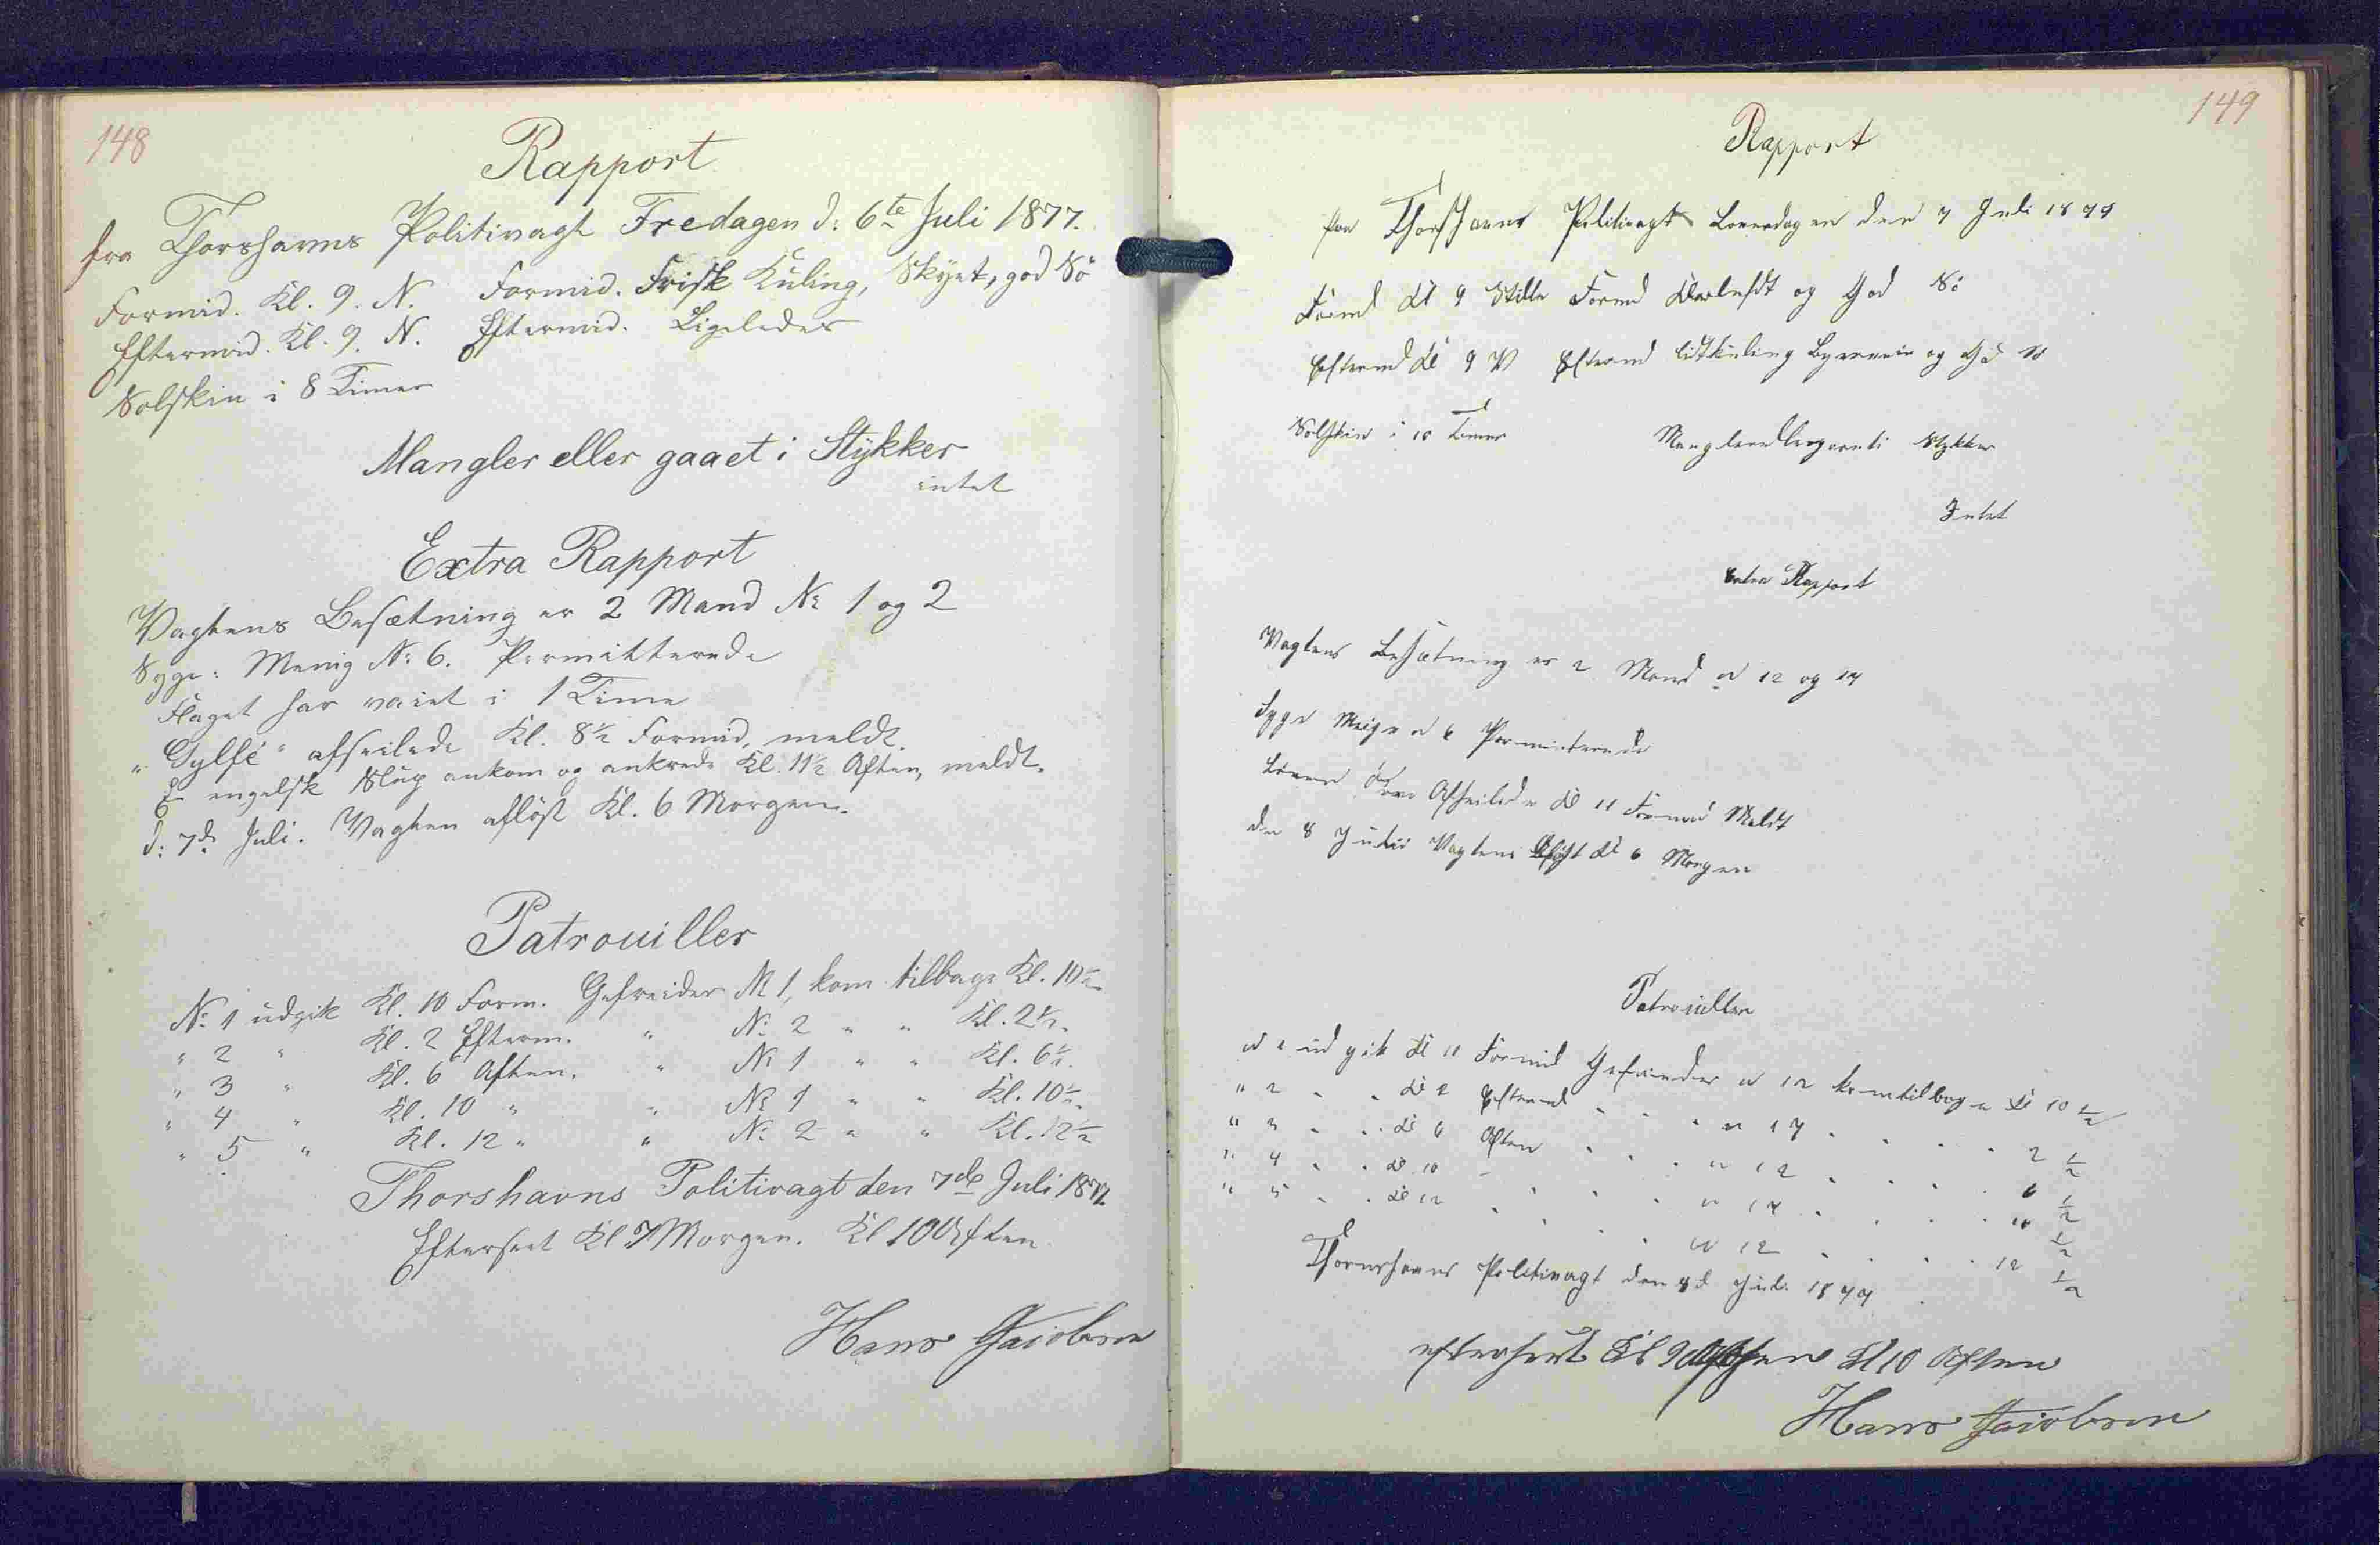 148
Rapport
fra Thorshavns Politivagt Fredagen d: 6te Juli 1877.
Formid. Kl. 9. N. Formid. Frisk Kuling, Skyet, god Sö
Eftermid. Kl. 9. N. Eftermid. Ligeledes
Solskin i 8 Timer
Mangler eller gaaet i Stykker
intet
Extra Rapport
Vagtens Besætning er 2 Mand No 1 og 2
Syge: Menig No 6. Permitterede
Flaget har vaiet i 1 Time
"Sylfe" afseilede Kl. 8½ Formid, meldt.
E engelsk Slup ankom og ankrede Kl. 11½ Aften, meldt.
d: 7de Juli. Vagten aflöst Kl. 6 Morgen.
Patrouiller
No 1 udgik Kl. 10 Form. Gefreider No 1, kom tilbage Kl. 10½
" 2 " Kl. 2 Efterm. " No 2 " " Kl. 2½.
" 3 " Kl. 6 Aften. " No 1 " " Kl. 6½.
" 4 " Kl. 10 " " No 1 " " Kl. 10½.
" 5 " Kl. 12 " " No 2 " " Kl. 12½
Thorshavns Politivagt den 7de Juli 1877
Efterseet Kl 7 Morgen. Kl 10 Aften
Hans Jacobsen
149
Rapport
fra Thorshavns Politivagt Loverdagen den 7 Juli 1877
Formd Kl 9 Stille Formd og God Sö
Eftermd Kl 9 V Eftermd litkuling og God Sö
Solskin i 10 Timer Stykker
Intet
Extra Rapport
Vagtens Besætning er 2 Mand N 12 og 17
Syge N 6 Permitterede
Afseilede Kl 11 Formd Meldt
den 8 Juli Vagtens Aflöst Kl 6 Morgen
Patrouiller
N 1 udgik Kl 10 Formid Gefreider N 12 kom tilbage Kl 10 ½
" 2 " " Kl 2 Eftermd " " " N 17 " " " " 2 ½
" 3 " " Kl 6 Aften " " " N 12 " " " " 6 ½
" 4 " " Kl 10 " " " " N 17 " " " " 10 ½
" 5 " " Kl 12 " " " " N 12 " " " " 12 ½
Thorshavns Politivagt den 8d Juli 1877
efterseet Kl 9 Kl 10 Aften
Hans Jacobsen